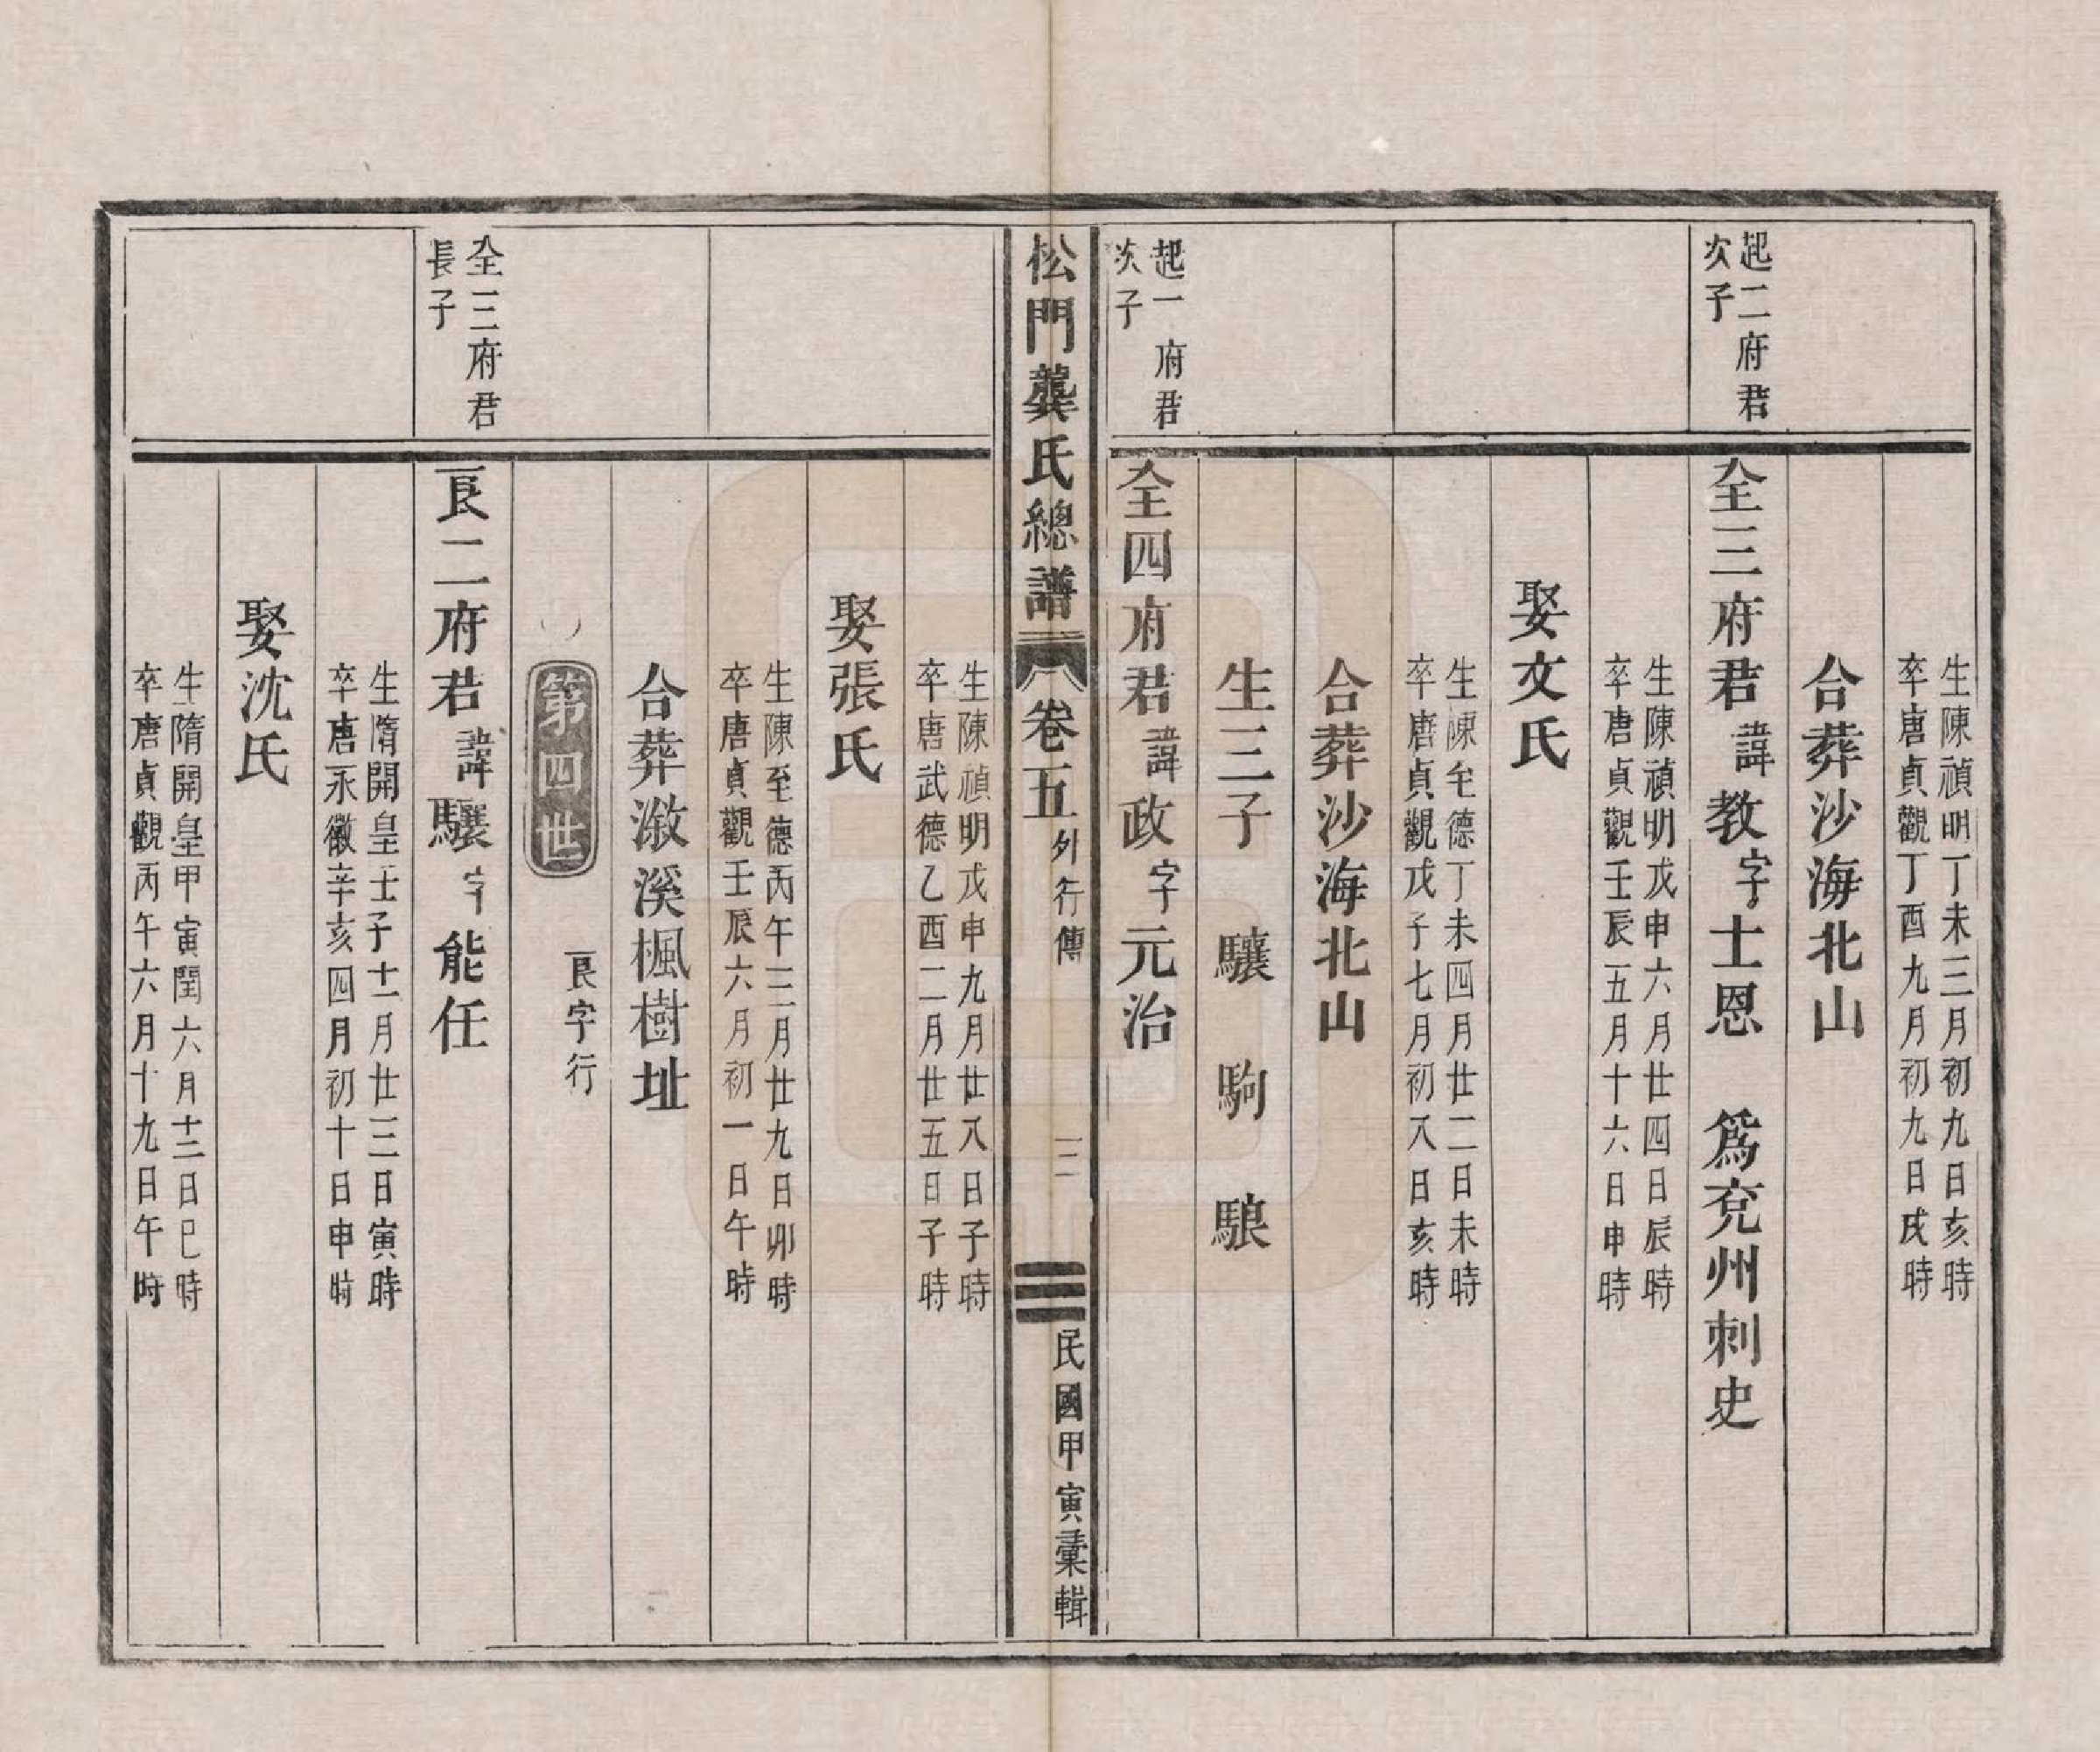 生陳禎明丁未三月初九日亥時
卒唐貞觀丁酉九月初九日戌時
合葬沙海北山
起二府君
次子
全三府君諱教字士恩　爲兗州刺史
生陳禎明戊申六月廿四日辰時
卒唐貞觀壬辰五月十六日申時
娶文氏
生陳至德丁未四月廿二日未時
卒唐貞觀戊子七月初八日亥時
合葬沙海北山
生三子　驤　駒　駺
起一府君
次子
全四府君諱政字元治
松門龔氏總譜
卷五外行傳
三
民國甲寅彙輯
生陳禎明戊申九月廿八日子時
卒唐武德乙酉二月廿五日子時
娶張氏
生陳至德丙午三月廿九日卯時
卒唐貞觀壬辰六月初一日午時
合葬漵溪楓樹址
第四世
良字行
全三府君
長子
良二府君諱驤字能任
生隋開皇壬子十一月廿三日寅時
卒唐永徽辛亥四月初十日申時
娶沈氏
生隋開皇甲寅閏六月十二日巳時
卒唐貞觀丙午六月十九日午時